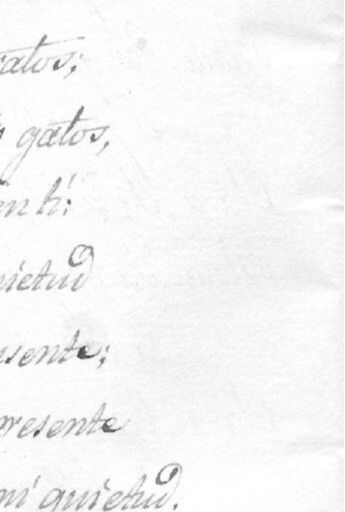 ratos;
gatos,
en ti:
quietud
sente;
presente
mi quietud.